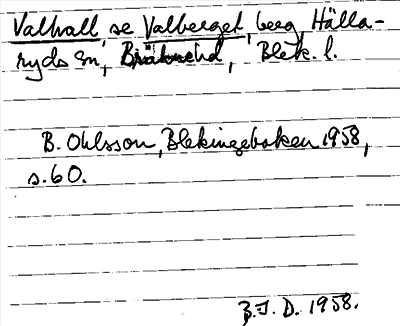 Valhall, se Valberget, berg, Hälla-
ryds sn, Bräkne hd, Blek. l.
B. Ohlsson, Blekingeboken 1958,
s. 60.
B. J. D. 1958.